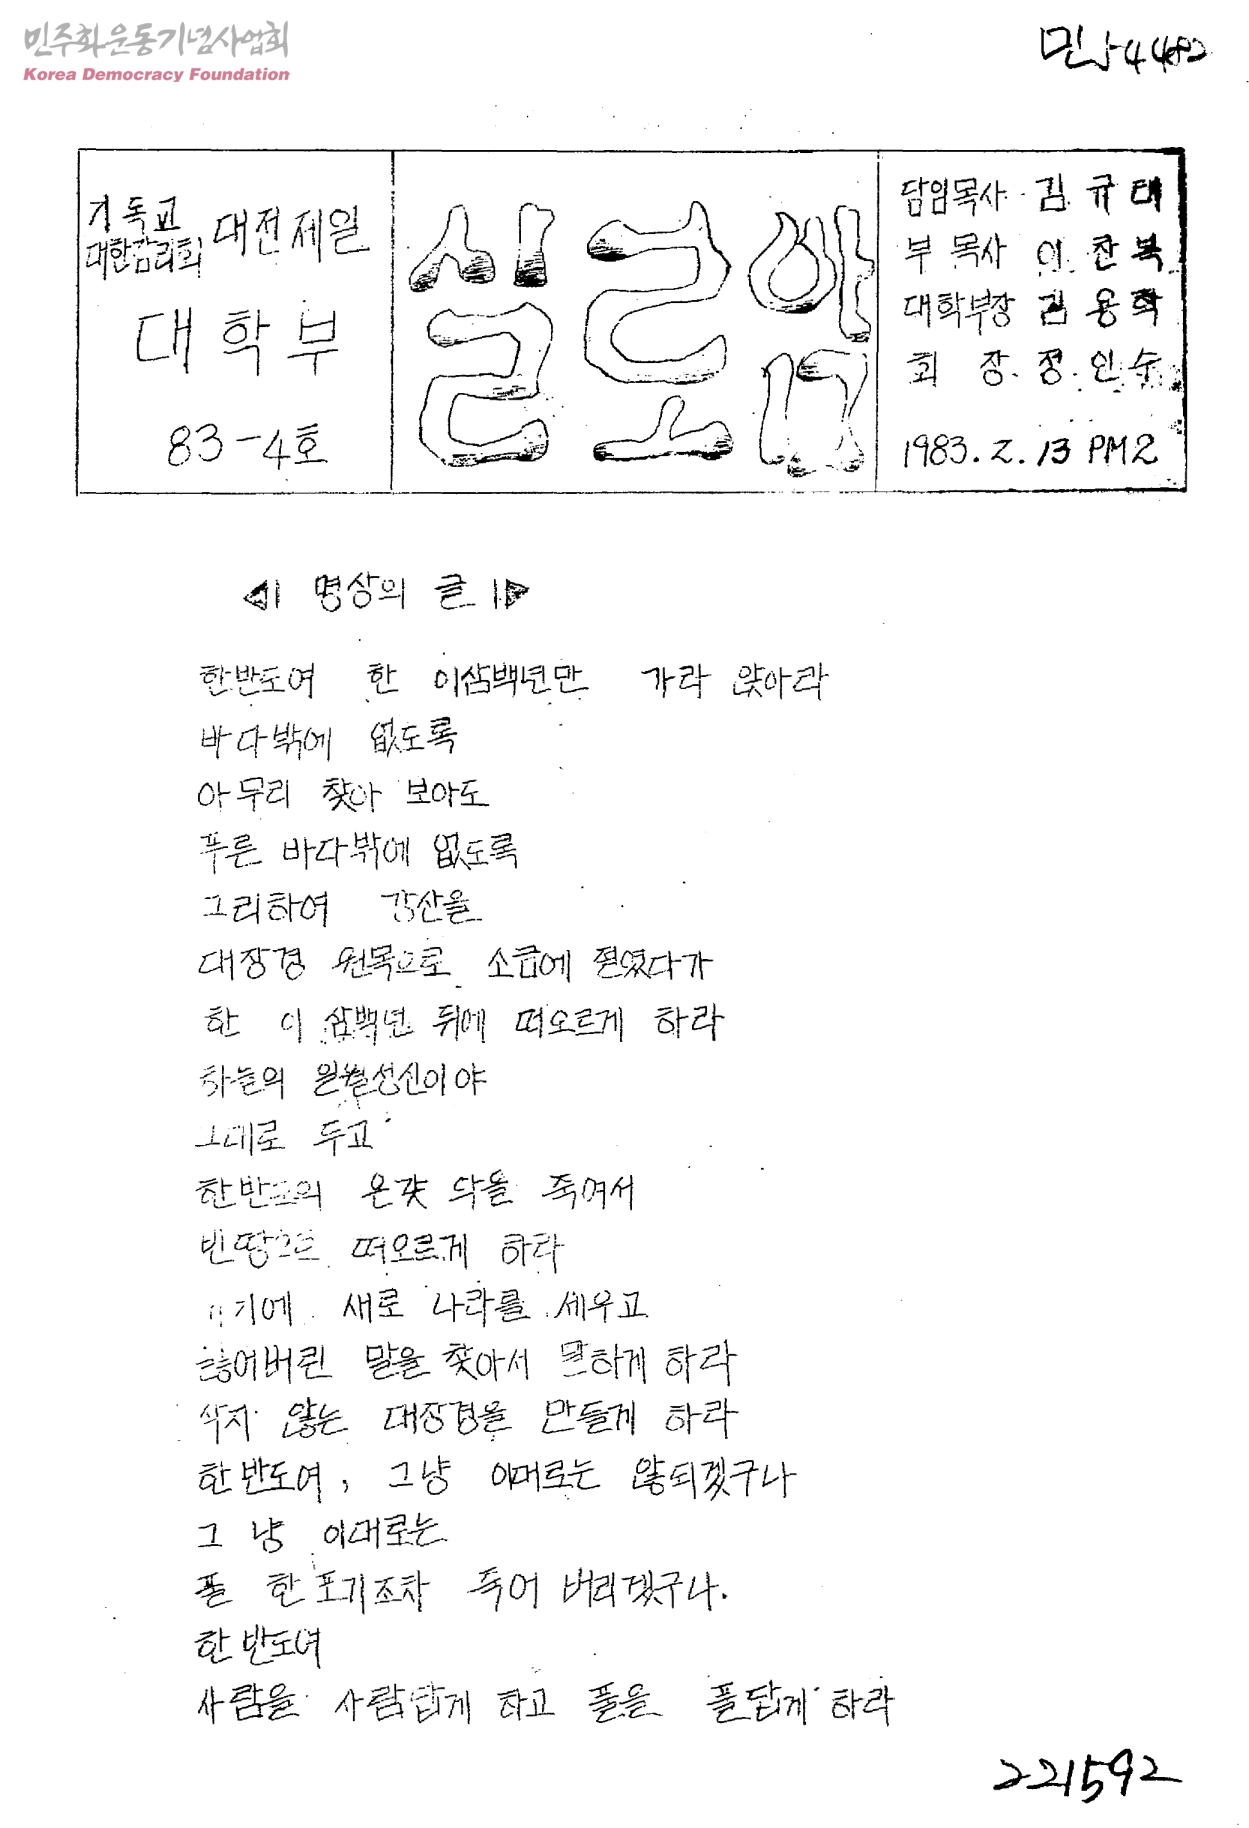 민주화운동기념사업회
Korea Democracy Foundation
기독교
대한감리회 대전제일
대학부
83-4호
담임목사 김규태
부목사 이찬복
대학부장 김용학
회장 정인수
1983. 2. 13 PM2
명상의 글
한반도여 한 이삼백년만 가라 앉아라
바다밖에 없도록
아무리 찾아 보아도
푸른 바다밖에 없도록
그리하여 강산을
대장경 원목으로 소금에 쩔였다가
한 이 삼백년 뒤에 떠오르게 하라
하늘의 일월성신이야
그대로 두고
한반도의 온갖 악을 죽여서
빈땅으로 떠오르게 하라
거기에 새로 나라를 세우고
잃어버린 말을 찾아서 말하게 하라
썩지 않는 대장경을 만들게 하라
한반도여, 그냥 이대로는 않되겠구나
그냥 이대로는
풀 한포기조차 죽어 버리겠구나.
한반도여
사람을 사람답게 하고 풀을 풀답게 하라
221592